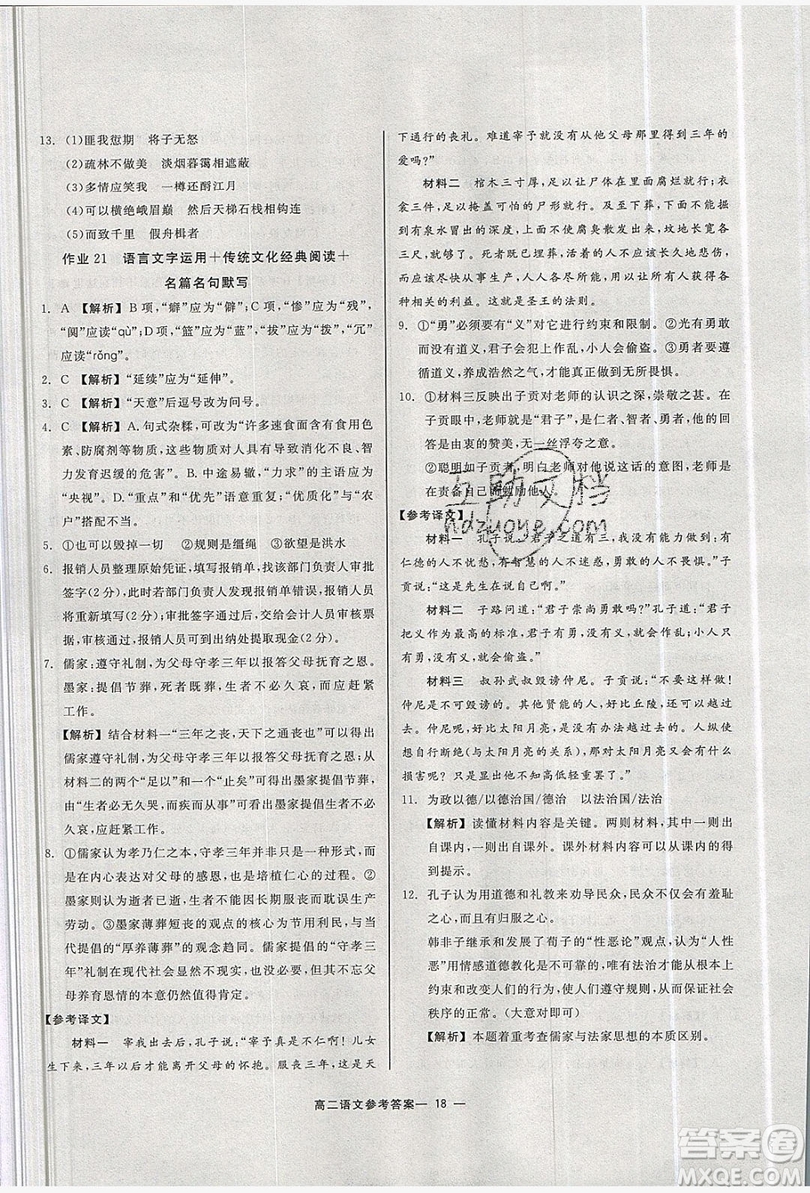 13. (1)匪我愆期 将子无怒
(2)疏林不做美 淡烟暮霭相遮蔽
(3)多情应笑我 一樽还酹江月
(4)可以横绝峨眉巅 然后天梯石栈相钩连
(5)而致千里 假舟楫者
作业 21 语言文字运用＋传统文化经典阅读＋
名篇名句默写
1. A 【解析】B 项,“癖”应为“僻”;C 项,“惨”应为“残”,
“阒”应读“qù”;D 项,“篮”应为“蓝”,“拔”应为“拨”,“冗”
应读“rǒng”。
2. C 【解析】“延续”应为“延伸”。
3. C 【解析】“天意”后逗号改为问号。
4. C 【解析】A. 句式杂糅,可改为“许多速食面含有食用
素、防腐剂等物质,对人会造成肝脏负担、免疫不良、智
力发育迟缓的危害”。B. 中途易辙,“力求”的主语应为
“央视”。D.“重点”和“优先”语意重复;“优质化”与“农
户”搭配不当。
5. ①也可以毁掉一切 ②规则是缰绳 ③欲望是洪水
6. 报销人员整理原始凭证,填写报销单,部门负责人审批
签字(2 分),此时若部门负责人发现报销单错误,报销人员
将重新填写(2 分);审批签字后,送交会计人员审核票
据,审核通过后,报销人员可到出纳处提取现金(2 分)。
7. 儒家:遵守礼制,为父母守孝三年以报答父母养育恩。
墨家:提倡节葬,死者既葬,生者不必久哀,而应赶紧
工作。
【解析】结合材料一“三年之丧,天下之通丧也”可以得出
儒家遵守礼制,为父母守孝三年以报答父母养育恩;从
材料二的两个“足以”和一个“止矣”可得出墨家提倡节葬,
由“生者必无久哭,而疾而从事”可以得出墨家提倡生者不必
久哀,应赶紧工作。
8. ①儒家认为孝乃仁之本,守孝三年不只是一种形式,而是
在内心表达对父母的感恩,也是培植仁心的方式。②
墨家则认为逝者已逝,生者不能因长期服丧而耽误生产
劳动。③墨家薄葬短丧的观点的核心与当下文明社会
的“厚养薄葬”的观念趋同。④儒家提倡的“守孝三
年”礼制在现代社会逐渐弱化甚至消失,但其不忘父
母养育恩情的本意仍然值得肯定。
【参考译文】
材料一 宰我出去后,孔子说:“宰予真是不仁啊! 儿女
生下来,三年以后才能离开父母的怀抱。服丧三年,是天
下通行的丧礼。难道宰予没有从他父母那里得到三年的
爱吗?”
材料二 棺木三寸厚,足以让尸体在里面腐烂就行;衣
裳三件,足以掩盖可怕的形体就行。及至下葬,下面没
有掘到泉水的深度,上面不至于使腐臭散发出来,坟地长宽各
三尺,就够了。死者既已埋葬,活人不应当长久为此哀哭,
而应该尽快从事生产,人人各尽所能,用以使大家交
相得利。这就是圣王的法则。
9. ①“勇”必须要有“义”对它进行约束和限制。②光有勇敢
而没有道义,君子会犯上作乱,小人会偷盗。③勇敢要与道义
循环,养成浩然之气,才能真正无所畏惧。
10. ①材料三反映出子贡对老师的认识之深,崇敬之甚。在
子贡眼中,老师就是“君子”,是仁者、智者、勇者。他的赞美
是出于由衷的赞美,无一丝浮夸之意。
②聪明如子贡,明白老师对他说这话的意图,老师是
在责备自己而勉励他人。
【参考译文】
材料一 孔子说:“君子之道有三,我无能力做到:有
仁德的人不忧愁,有智慧的人不迷惑,勇敢的人不畏惧。”子
贡说:“这是先生在说自己啊!”
材料二 子路问道:“君子崇尚勇敢吗?”孔子道:“君子
把义作为最高的标准,君子有勇,没有义,就会作乱;小人只
有勇,没有义,就会偷盗。”
材料三 叔孙武叔毁谤仲尼。子贡说:“不要这样做!
仲尼是不可以毁谤的。其他贤能的人,好比丘陵,还可以越
过去。仲尼,好比太阳月亮,是没有办法超越的。一个人纵
使想自行断绝(与太阳月亮的关系),那对太阳月亮又会有什么
损害呢? 只是显出他不自量罢了。”
11. 为政以德/以德治国/德治 以法治国/法治
【解析】读懂材料内容是关键。两则材料,一则材料出
自课内,一则材料出自课外。课外材料内容可以得到课内
的提示。
12. 孔子认为用道德和礼教来劝导民众,民众不仅会有羞耻
之心,而且有归服之心。
韩非子继承和发展了荀子的“性恶论”观点,认为“人性
恶”用情感道德教化是不行的,必须通过法治来
约束和改变人们的行为,使人们遵守规则,从而保证社会
秩序的正常。(大意对即可)
【解析】本题着重考查儒家与法家思想的本质区别。
互助文档
hdzuoye.com
高二语文参考答案— 18 —
答案圈
MXQE.COM